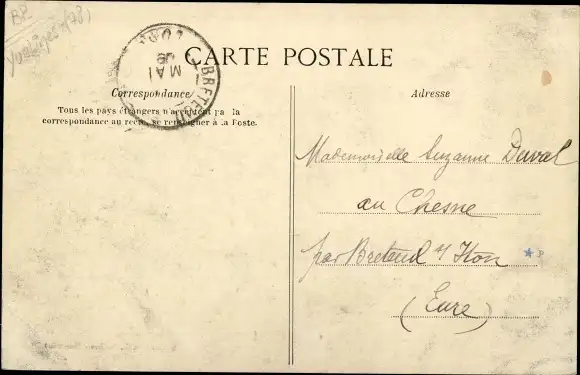 BP
Yvelines (78)
BRETEU
MAI
CARTE POSTALE
Correspondance
Adresse
Tous les pays étrangers n'acceptent pa la
correspondance au recto, se renseigner à la Poste.
Mademoiselle Suzanne Duval
au Chesne
par Breteuil s/ Iton
P
(Eure)